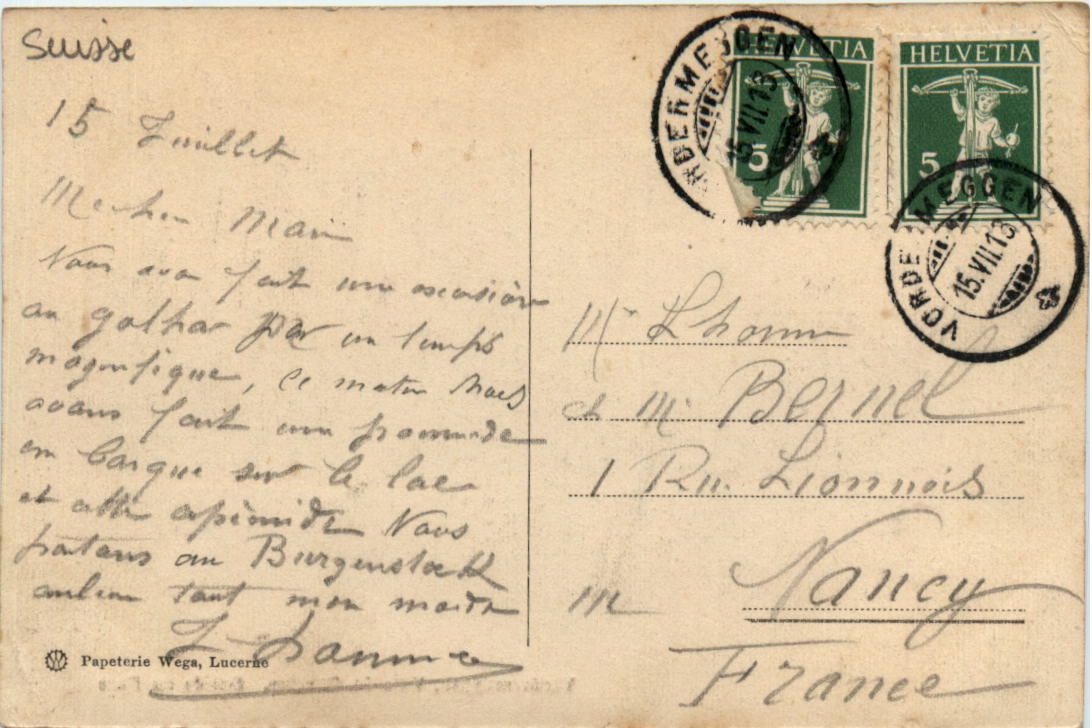 Suisse
15 Juillet
Nous avon fait une excursion
au gothar par un temps
magnifique, ce matin Nous
avons fait une promende
en barque sur le lac
et cette apremide Nous
partons au Burgenstock
tout mon monde
Lhomme
Papeterie Wega, Lucerne
HELVETIA
5
VORDERMEGGEN
15.VII.13
HELVETIA
5
VORDERMEGGEN
15.VII.13
Mr Lhomme
et Mr Bernel
1 Rue Lionnois
Nancy
France